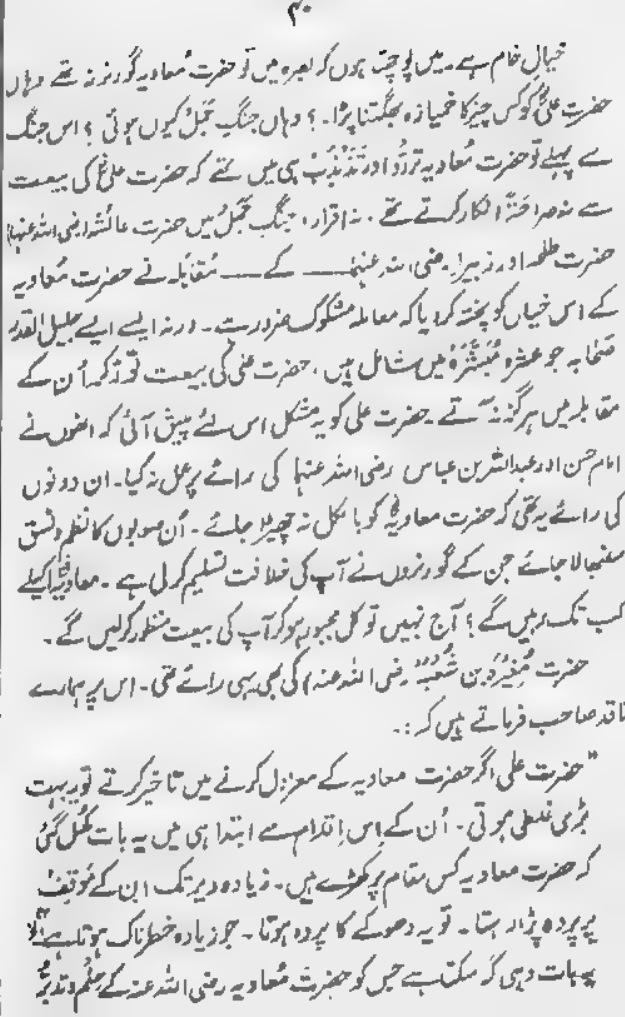 ۴۰
خیالِ خام ہے۔ میں پوچھتا ہوں کہ بصرہ میں تو حضرت مُعاویہ گورنر نہ تھے وہاں
حضرت علیؓ کو کس چیز کا خمیازہ بھگتنا پڑا۔؟ وہاں جنگِ جَمَل کیوں ہوئی؟ اس جنگ
سے پہلے تو حضرت مُعاویہ تَرَدُّد اور تَذَبْذُب ہی میں تھے کہ حضرت علیؓ کی بیعت
سے نہ صراحتاً انکار کرتے تھے۔ نہ اقرار، جنگِ جَمَل میں حضرت عائشہ (رضی اللہ عنہا)
حضرت طلحہ اور زبیر رضی اللہ عنہما کے مُقابلہ نے حضرت مُعاویہ
کے اس خیال کو پختہ کر دیا کہ معاملہ مشکوک ضرور ہے۔ ورنہ ایسے ایسے جلیل القدر
صَحابہ جو عشرہ مُبَشَّرَہ میں شامل ہیں، حضرت علی کی بیعت توڑ کر اُن کے
مقابلہ میں ہرگز نہ آتے۔ حضرت علی کو یہ مشکل اس لئے پیش آئی کہ انھوں نے
امام حسن اور عبداللہ بن عباس رضی اللہ عنہما کی رائے پر عمل نہ کیا۔ ان دونوں
کی رائے یہ تھی کہ حضرت معاویہؓ کو بالکل نہ چھیڑا جائے۔ اُن صوبوں کا نظم و نسق
سنبھالا جائے جن کے گورنروں نے آپ کی خلافت تسلیم کر لی ہے۔ معاویہؓ اکیلے
کب تک رہیں گے؟ آج نہیں تو کل مجبور ہو کر آپ کی بیعت منظور کرلیں گے۔
حضرت مُغِیرَہ بن شُعْبَہ (رضی اللہ عنہ) کی بھی یہی رائے تھی۔ اس پر ہمارے
ناقد صاحب فرماتے ہیں کہ:۔
"حضرت علی اگر حضرت معاویہ کے معزول کرنے میں تاخیر کرتے تو یہ بہت
بڑی غلطی ہوتی۔ اُن کے اِس اِقدام سے ابتدا ہی میں یہ بات کُھل گئی
کہ حضرت معاویہ کس مقام پر کھڑے ہیں۔ زیادہ دیر تک ان کے مُوقِف
پر پردہ پڑا رہتا۔ تو یہ دھوکے کا پردہ ہوتا۔ جو زیادہ خطرناک ہوتا ہے"
یہ بات وہی کہہ سکتا ہے جس کو حضرت مُعاویہ رضی اللہ عنہ کے حِلْم و تَدبُّر